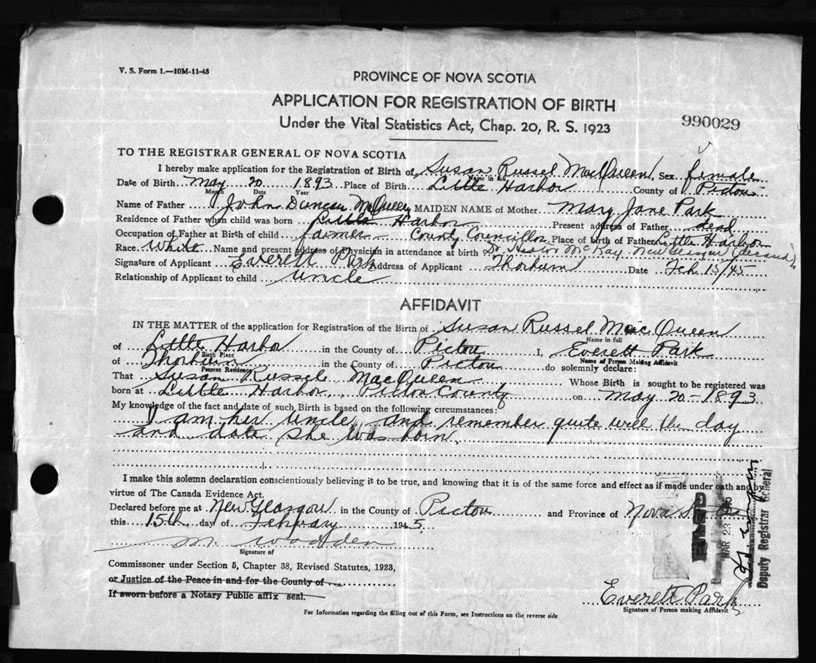 V. S. Form 1.—10M-11-43
PROVINCE OF NOVA SCOTIA
APPLICATION FOR REGISTRATION OF BIRTH
Under the Vital Statistics Act, Chap. 20, R. S. 1923
990029
TO THE REGISTRAR GENERAL OF NOVA SCOTIA
I hereby make application for the Registration of Birth of Susan Russel MacQueen Sex female
Name in full
Date of Birth May 20 1893 Place of Birth Little Harbor County of Pictou
Month Date Year
Name of Father John Duncan McQueen MAIDEN NAME of Mother Mary Jane Park
Residence of Father when child was born Little Harbor Present address of Father dead
Occupation of Father at Birth of child farmer County Councillor Place of birth of Father Little Harbor
Race White Name and present address of Physician in attendance at birth Dr. McKay New Glasgow
Signature of Applicant Everett Park Address of Applicant Thorburn Date Feb 15/45
Relationship of Applicant to child uncle
AFFIDAVIT
IN THE MATTER of the application for Registration of the Birth of Susan Russel MacQueen
Name in full
of Little Harbor in the County of Pictou I, Everett Park
Birth Place Name of Person Making Affidavit
of Thorburn in the County of Pictou do solemnly declare:
Present Residence
That Susan Russele MacQueen Whose Birth is sought to be registered was
born at Little Harbor, Pictou County on May 20-1893
My knowledge of the fact and date of such Birth is based on the following circumstances:
I am her uncle and remember quite well the day
and date she was born.
I make this solemn declaration conscientiously believing it to be true, and knowing that it is of the same force and effect as if made under oath and by
virtue of The Canada Evidence Act.
Declared before me at New Glasgow in the County of Pictou and Province of Nova
this 15th day of February 1945
Signature of
Commissioner under Section 5, Chapter 38, Revised Statutes, 1923,
or Justice of the Peace in and for the County of
If sworn before a Notary Public affix seal.
Everett Park
Signature of Person making Affidavit
For Information regarding the filling out of this Form, see Instructions on the reverse side
Deputy Registrar General